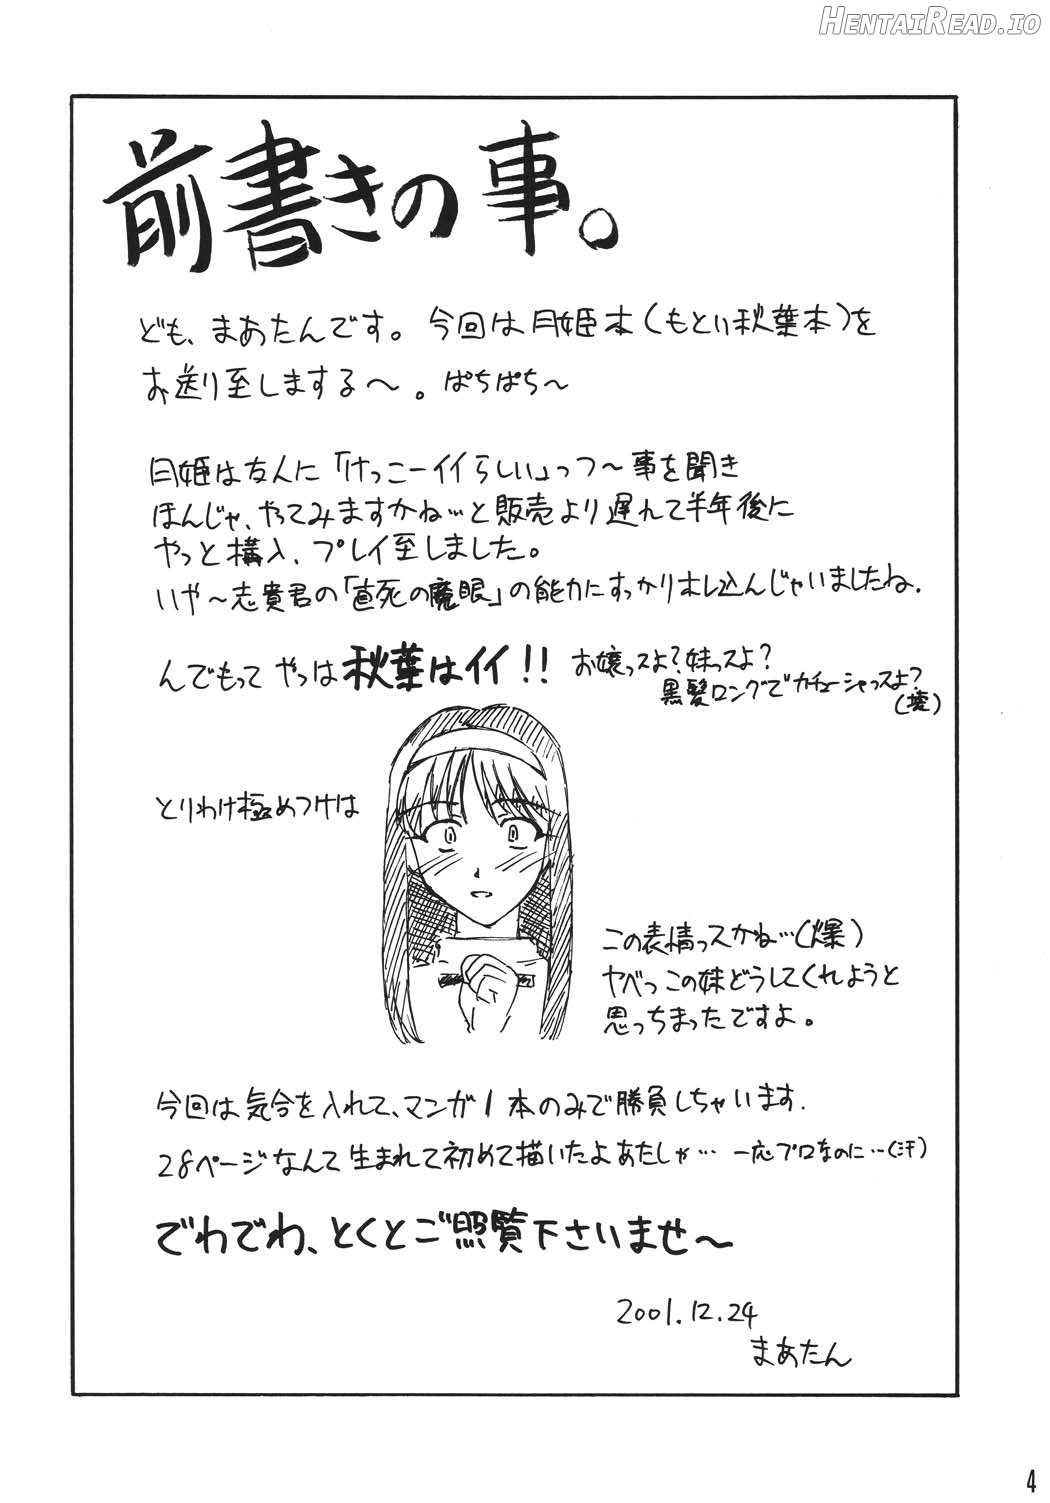 HENTAIREAD.IO
前書きの事。
ども、まあたんです。今回は月姫本(もとい秋葉本)を
お送り至しまする〜。ぱちぱち〜
月姫は友人に「けっこーイイらしい」っつ〜事を聞き
ほんじゃ、やってみますかね…と販売より遅れて半年後に
やっと購入、プレイ至しました。
いや〜志貴君の「直死の魔眼」の能力にすっかりホレ込んじゃいましたね.
んでもって やっぱ 秋葉はイイ!! お嬢っスよ?妹っスよ?
黒髪ロングでカチューシャっスよ?
(壊)
とりわけ極めつけは
この表情っスかね…(爆)
ヤベっこの妹どうしてくれようと
思っちまったですよ。
今回は気合を入れて、マンガ1本のみで勝負しちゃいます.
28ページなんて生まれて初めて描いたよあたしゃ… 一応プロなのに…(汗)
でわでわ、とくとご照覧下さいませ〜
2001.12.24
まあたん
4